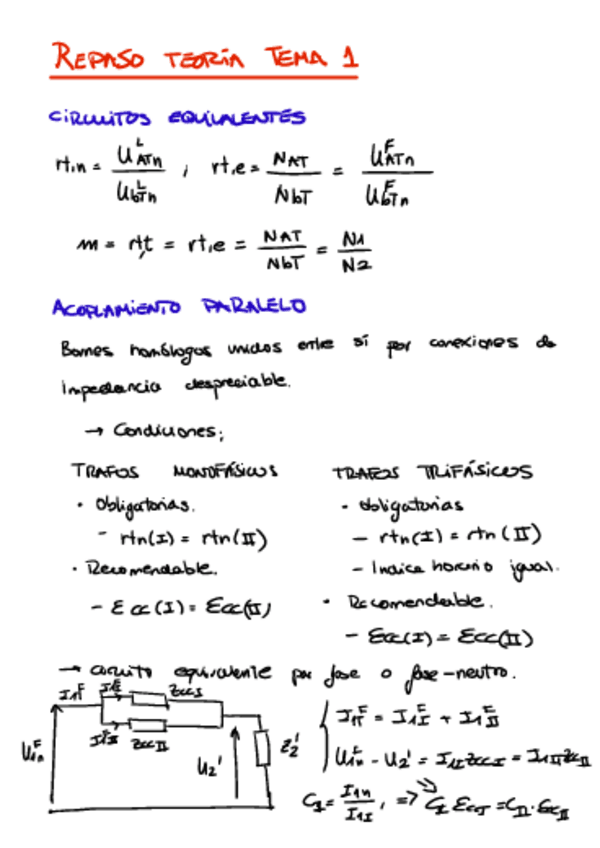 REPASO TEORÍA TEMA 1
CIRCUITOS EQUIVALENTES
rt,n = U^L ATn / U^L bTn ; rt,e = NAT / NbT = U^F ATn / U^F bTn
m = rt,t = rt,e = NAT / NbT = N1 / N2
ACOPLAMIENTO PARALELO
Bornes homólogos unidos entre sí por conexiones de
impedancia despreciable.
→ Condiciones;
TRAFOS MONOFÁSICOS
· Obligatorias.
- rtn(I) = rtn(II)
· Recomendable.
- Ecc(I) = Ecc(II)
TRAFOS TRIFÁSICOS
· Obligatorias
- rtn(I) = rtn(II)
- Indice horario igual.
· Recomendable.
- Ecc(I) = Ecc(II)
→ Circuito equivalente por fase o fase-neutro.
I1T^F I1I^F ZccI
I1II^F ZccII
U1n^F U2' Z2'
I1T^F = I1I^F + I1II^F
U1n^F - U2' = I1I ZccI = I1II ZccII
CI = I1n / I1I , => CI EccI = CII · EccII